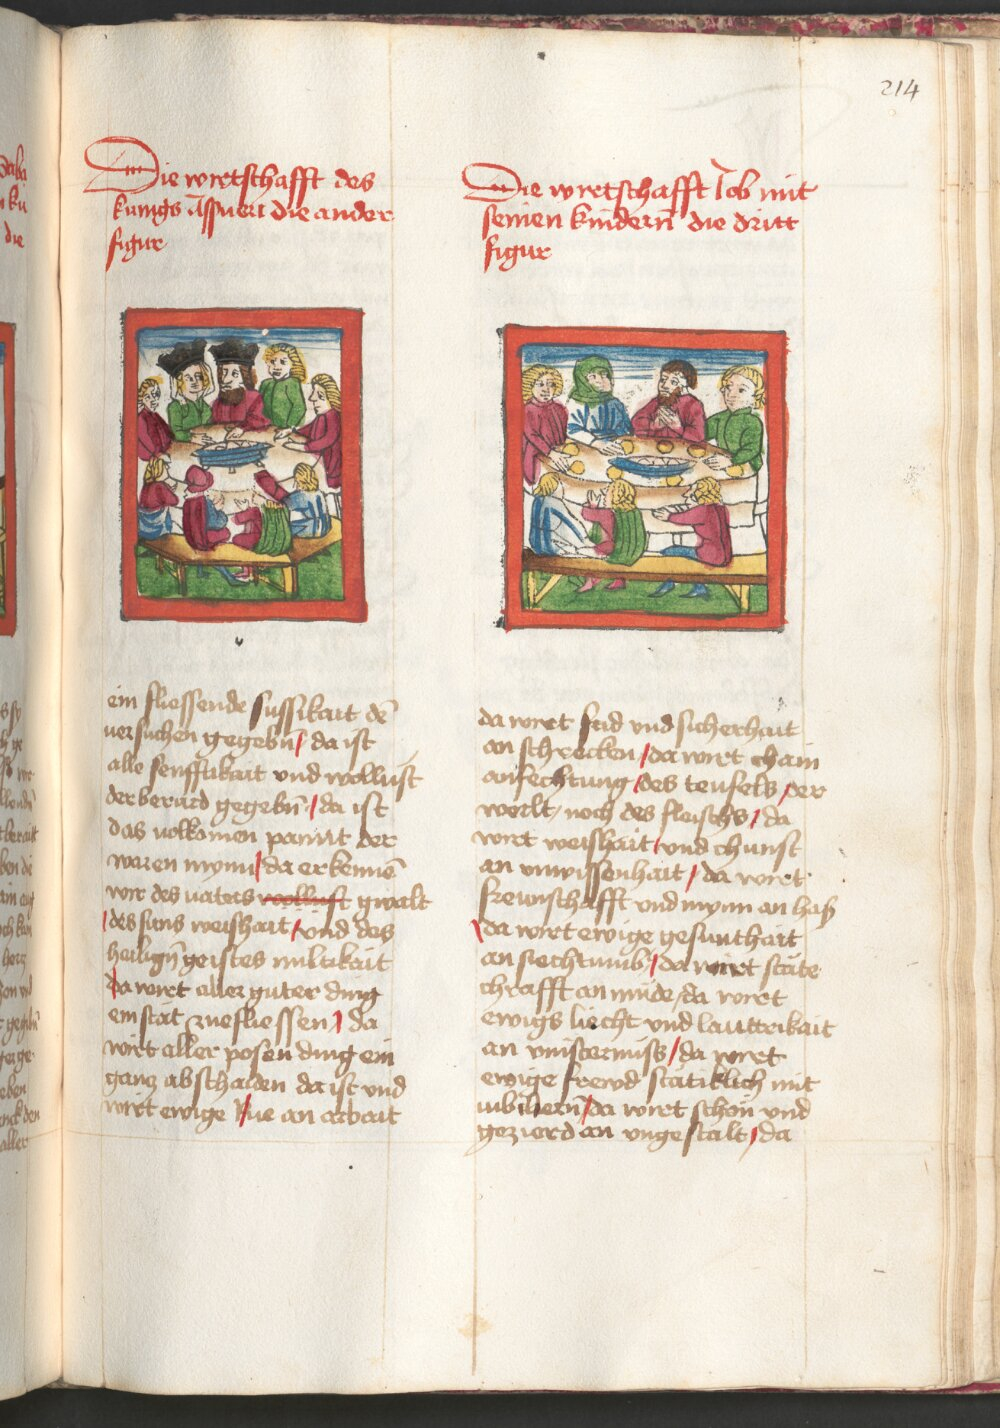 214
Die wirtschafft des
kunigs Assueri die ander
figur
ein fliessende sussikait dē
versuchen gegebn̄ / da ist
alle senfftikait vnd wollust
der berurd gegebn̄ / da ist
das volkomen pannt der
waren mynn / da erkennē
wir des vaters wollust gwalt
/ des suns weishait / vnd des
heilign̄ geistes miltikait
da wirt aller guter ding
ein stät zuefliessen / da
wirt aller posen ding ein
gancz abschaiden da ist vnd
wirt ewige Rue an arbait
Die wirtschafft Iob mit
seinen kindern̄ die dritt
figur
da wirt frid vnd sicherhait
an schrecken / da wirt chain
anfechtung / des teufels / der
werlt / noch des fleischs / da
wirt weishait / vnd chunst
an vnwissenhait / da wirt
freunschafft vnd mynn an hass
/ da wirt ewige gesunthait
an siechtumb / da wirt stäte
chrafft an müde / da wirt
ewigs liecht vnd lauttrikait
an vinsterniss / da wirt
ewige frewd stätiklich mit
iubiliern̄ / da wirt schön vnd
gezierd an vngestalt / da